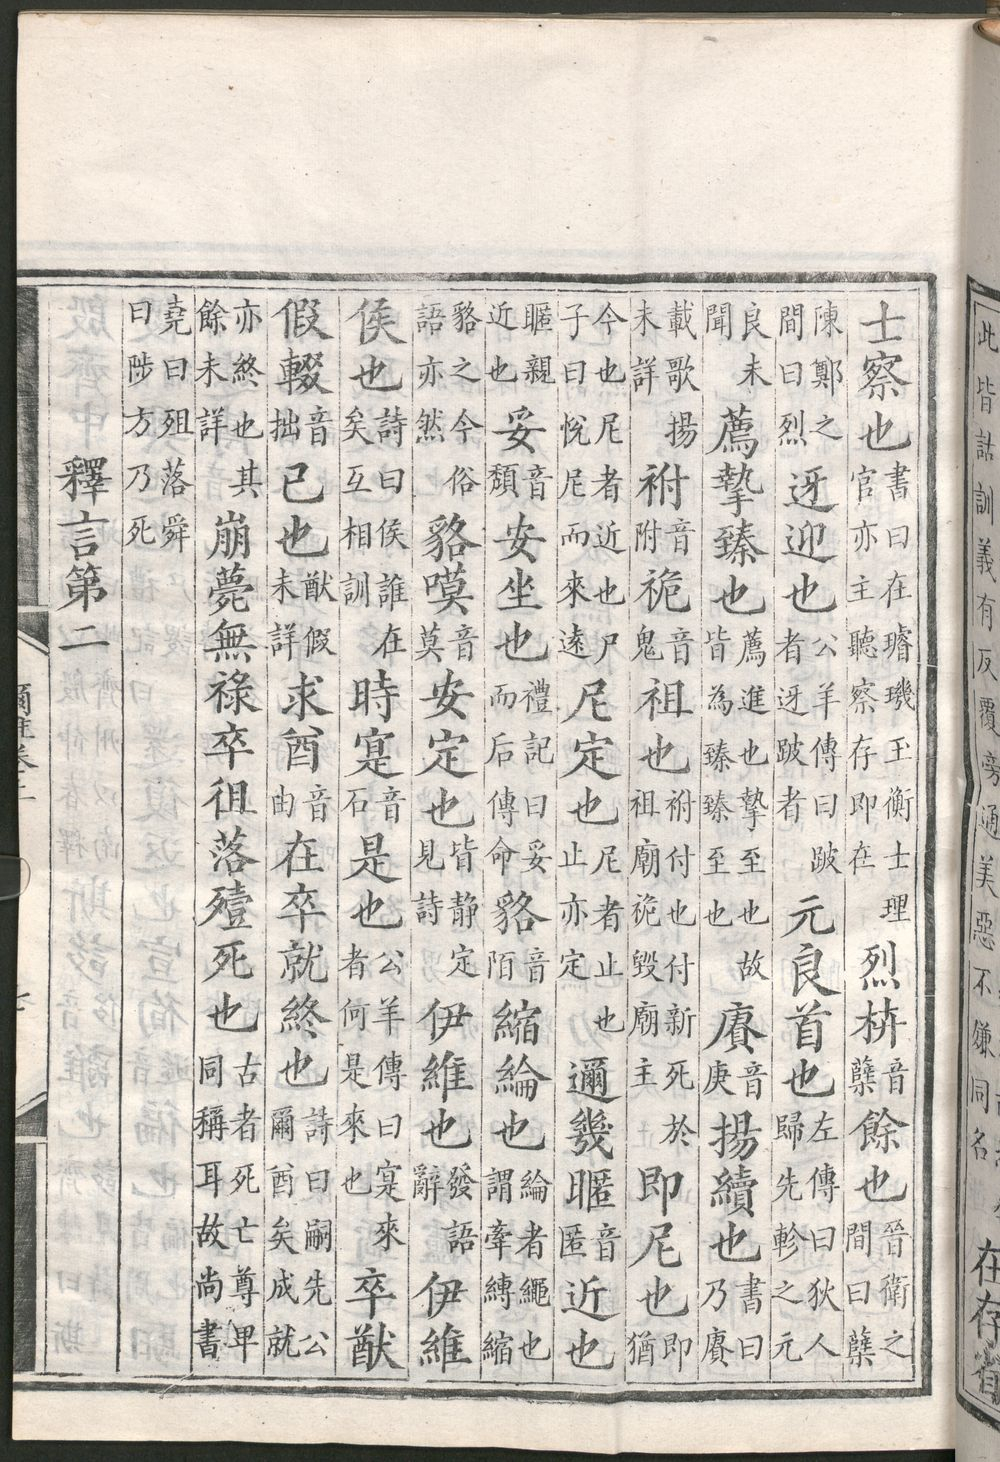 此皆詁訓義有反覆旁通美惡不嫌同名
在存省
士察也書曰在璿璣玉衡士理官亦主聽察存即在烈枿音蘖餘也晉衛之間曰蘖
陳鄭之間曰烈迓迎也公羊傳曰跛者迓跛者元良首也左傳曰狄人歸先軫之元
良未聞薦摯臻也薦進也摯至也故皆為臻臻至也賡音庚揚續也書曰乃賡
載歌揚未詳祔音附祪音鬼祖也祔付也付新死於祖廟祪毀廟主即尼也即猶
今也尼者近也尸子曰悅尼而來遠尼定也尼者止也止亦定邇幾暱音匿近也
暱親近也妥音頹安坐也禮記曰妥而后傳命貉音陌縮綸也綸者繩也謂牽縛縮
貉之今俗語亦然貉嗼音莫安定也皆静定見詩伊維也發語辭伊維
侯也詩曰侯誰在矣互相訓時寔音石是也公羊傳曰寔來者何是來也卒猷
假輟音拙已也猷假未詳求酋音由在卒就終也詩曰嗣先公爾酋矣成就
亦終也其餘未詳崩薨無祿卒徂落殪死也古者死亡尊卑同稱耳故尚書
堯曰殂落舜曰陟方乃死
釋言第二